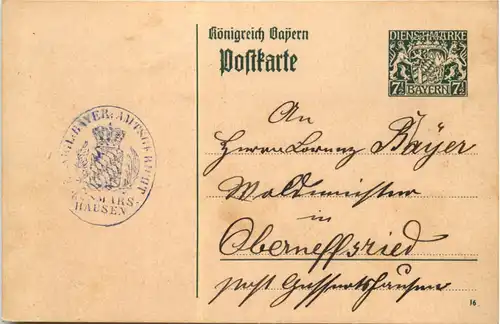 Königreich Bayern
Postkarte
DIENSTMARKE
7½
BAYERN
7½
KGL. BAYER. AMTSGERICHT
ZUSMARS-
HAUSEN
An
Herrn Lorenz Bayer
Waldmeister
in
Oberneffsried
post Gessertshausen
16